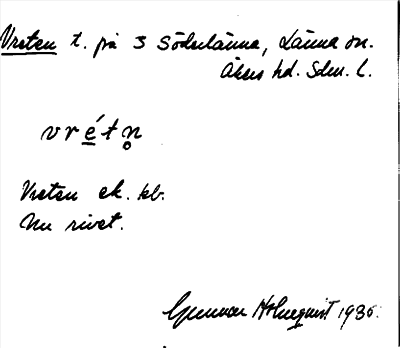 Vreten t. på 3 Söderlänna, Länna sn.
Åkers hd. Sdm. l.
vrétn̥
Vreten ek. kb.
Nu rivet.
Gunnar Holmquist 1936.